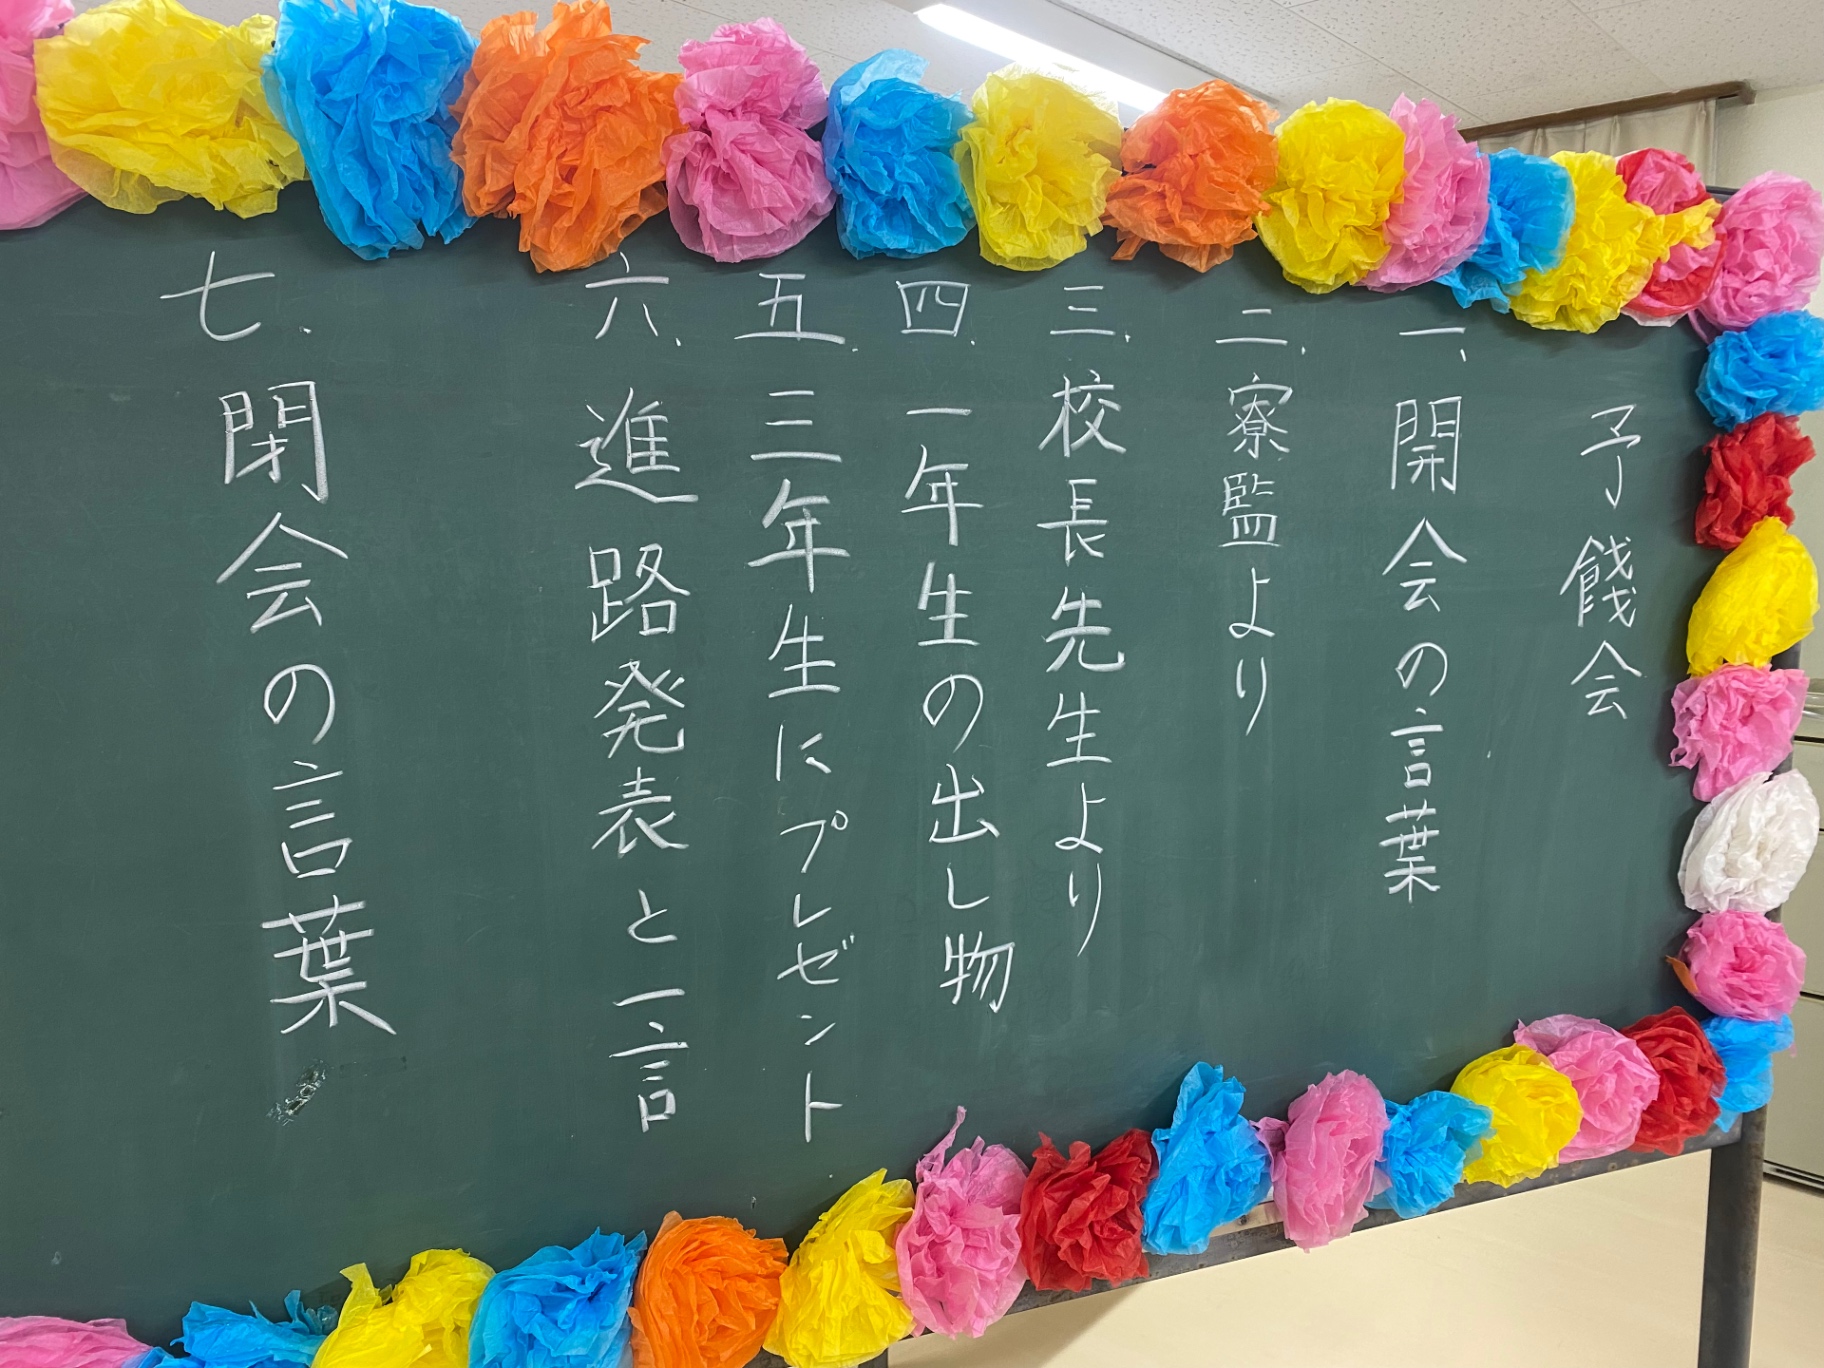 予餞会
一、開会の言葉
二、寮監より
三、校長先生より
四、一年生の出し物
五、三年生にプレゼント
六、進路発表と一言
七、閉会の言葉